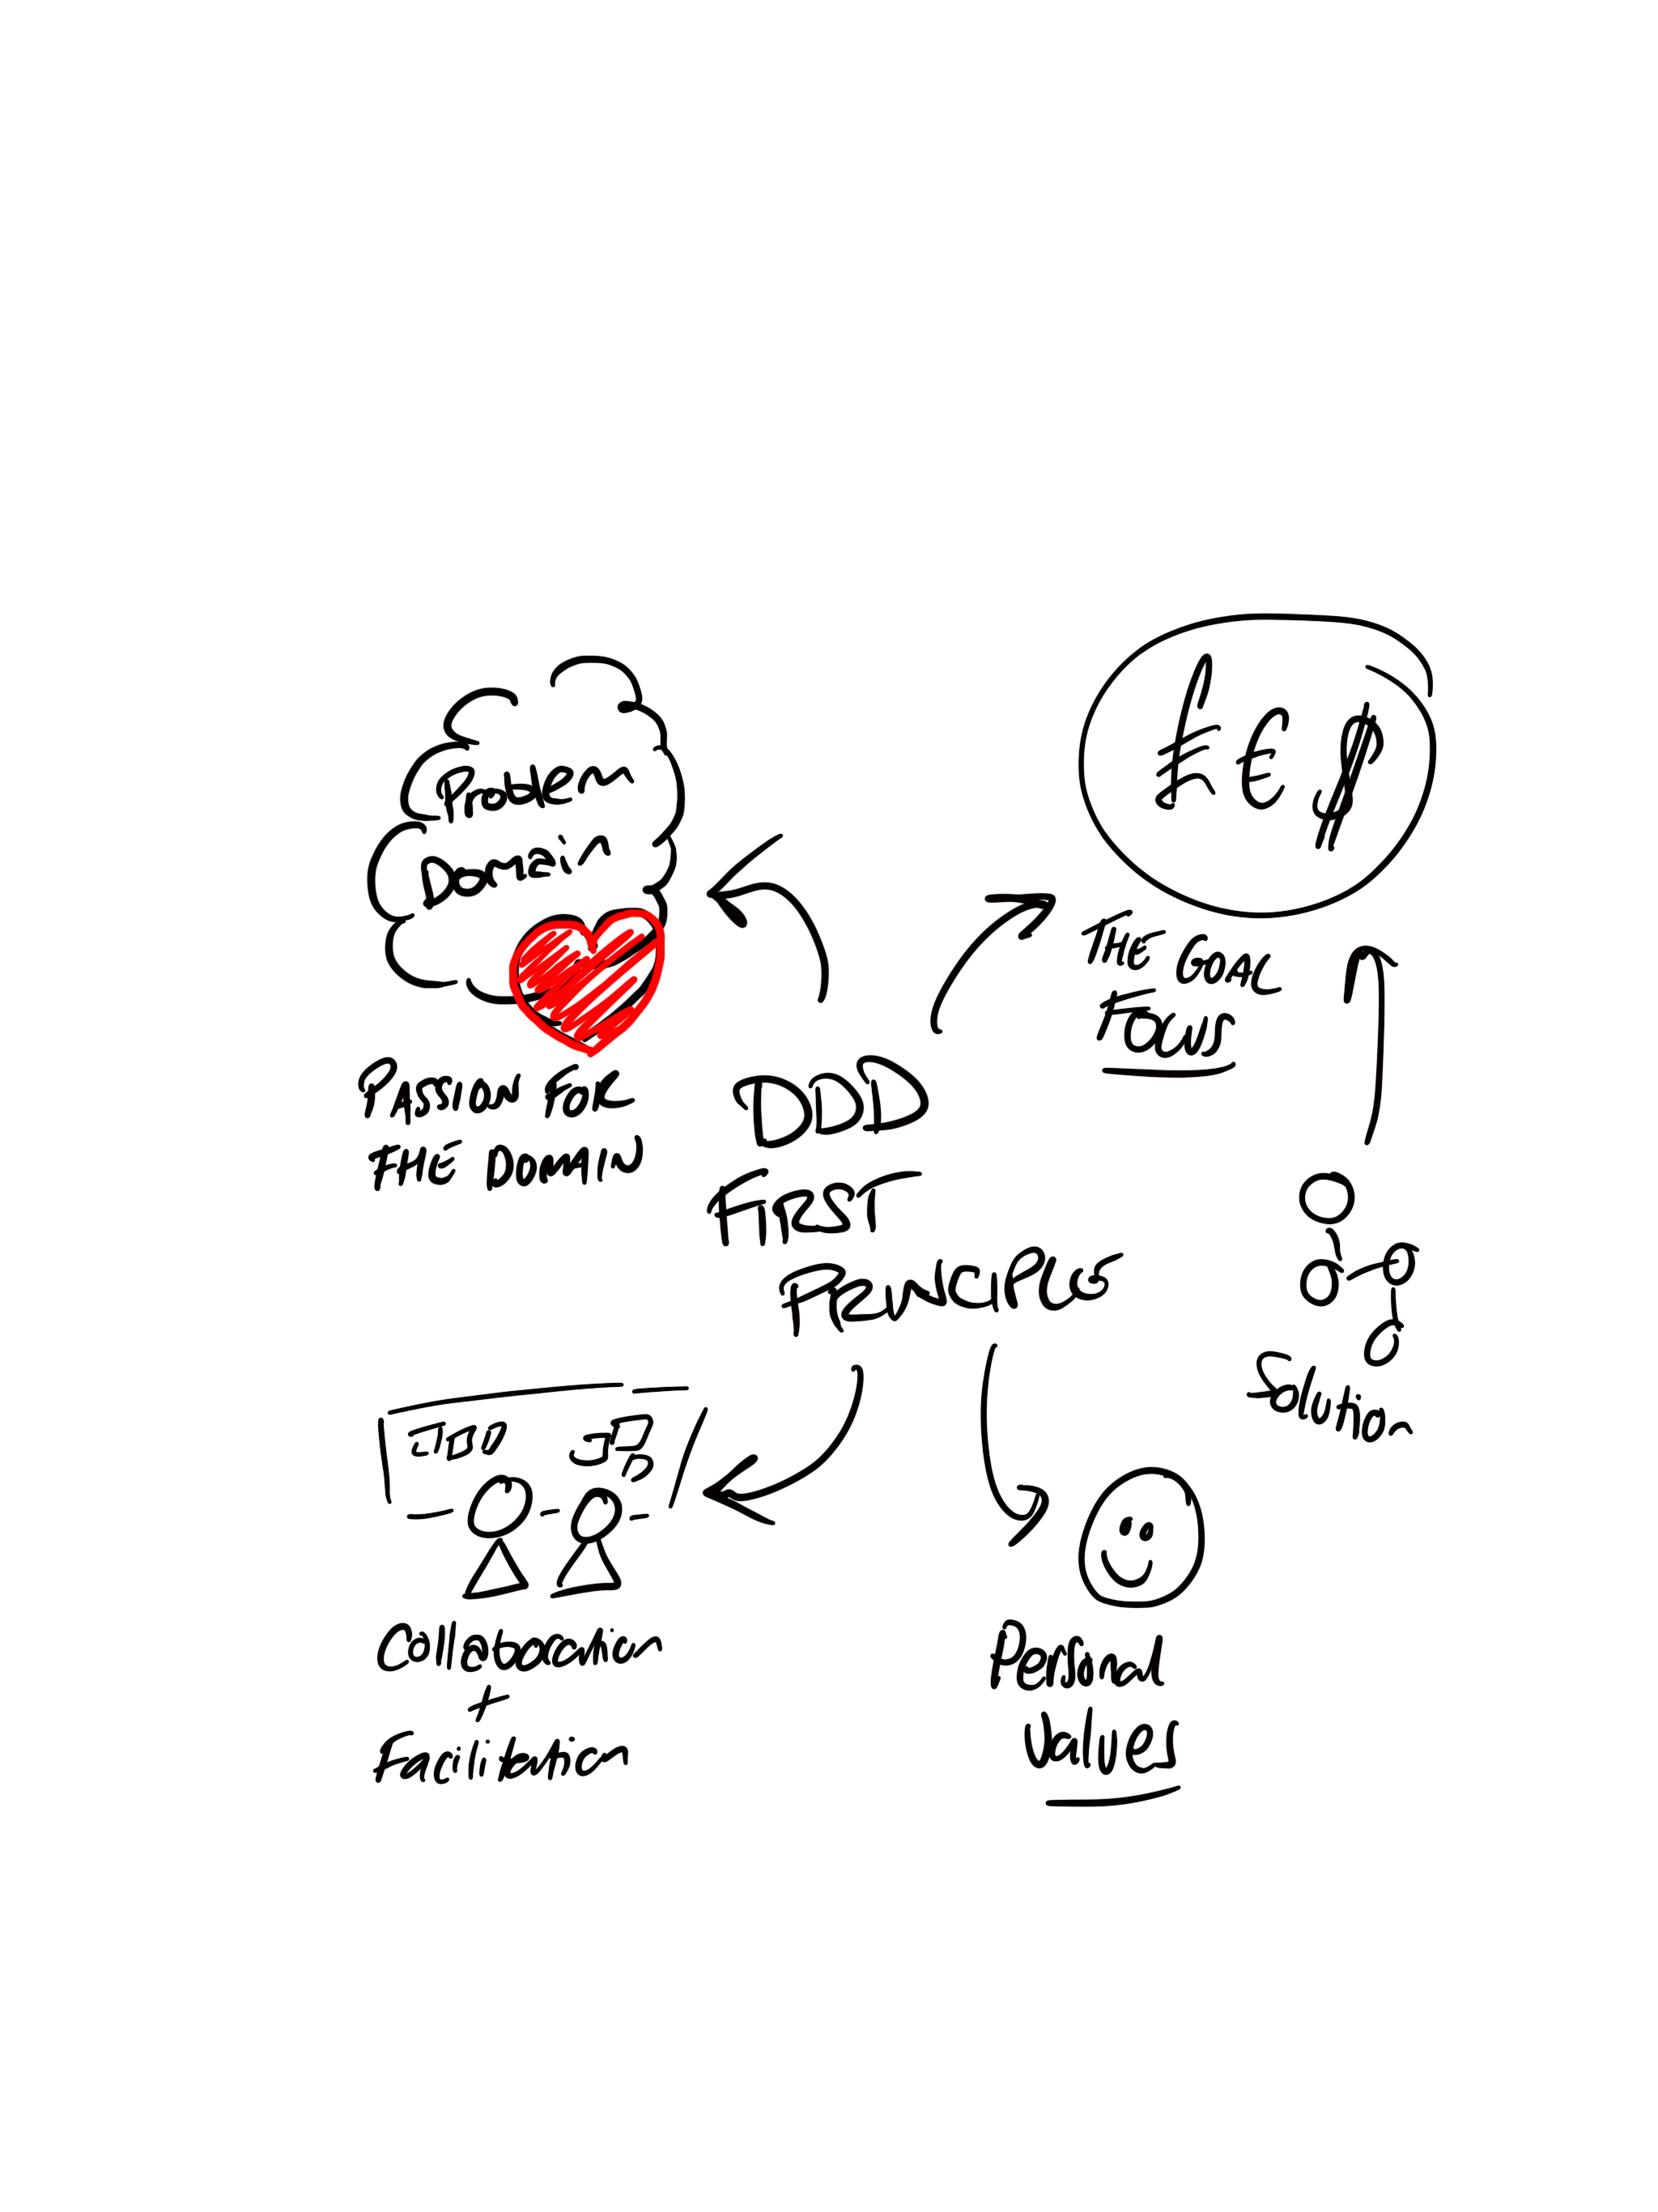 Problem
Domain
PASSION FOR
THE DOMAIN
£ € $
THE CORE
FOCUS
DDD
FIRST
PRINCIPLES
Solution
Collaboration
+
Facilitation
Personal
Values